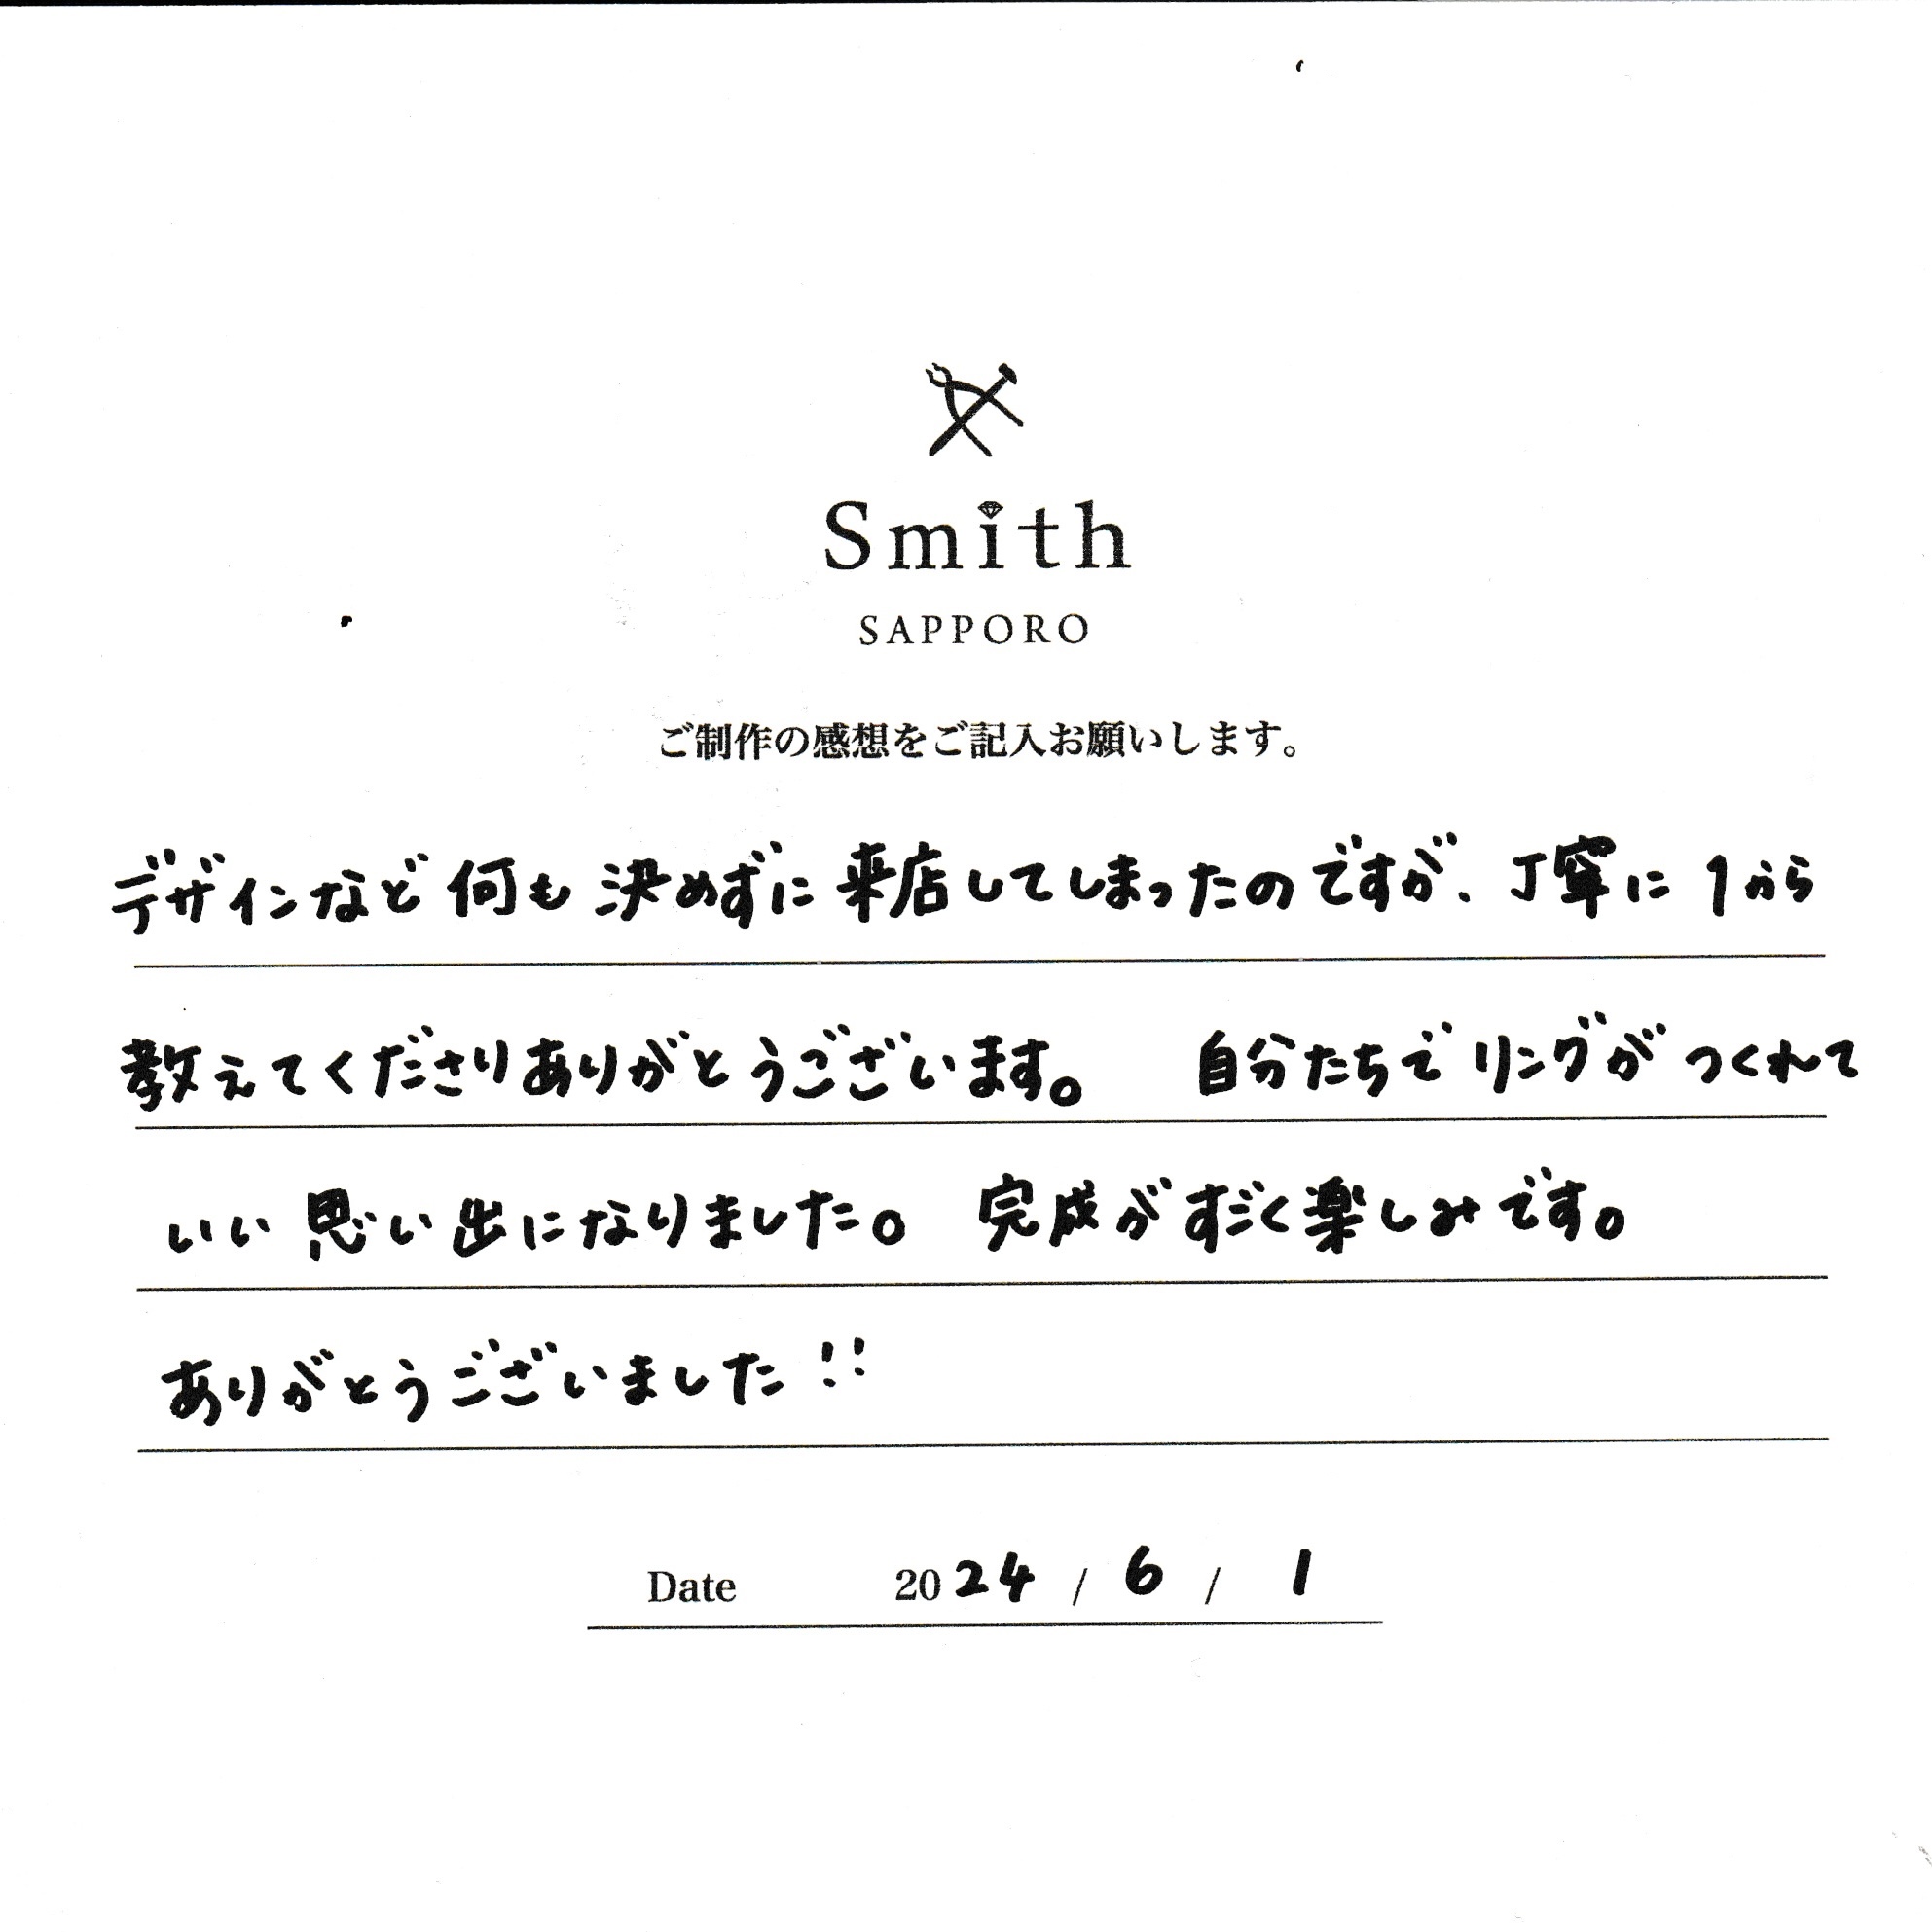 Smith
SAPPORO
ご制作の感想をご記入お願いします。
デザインなど何も決めずに来店してしまったのですが、丁寧に1から
教えてくださりありがとうございます。 自分たちでリングがつくれて
いい思い出になりました。 完成がすごく楽しみです。
ありがとうございました!!
Date 2024 / 6 / 1